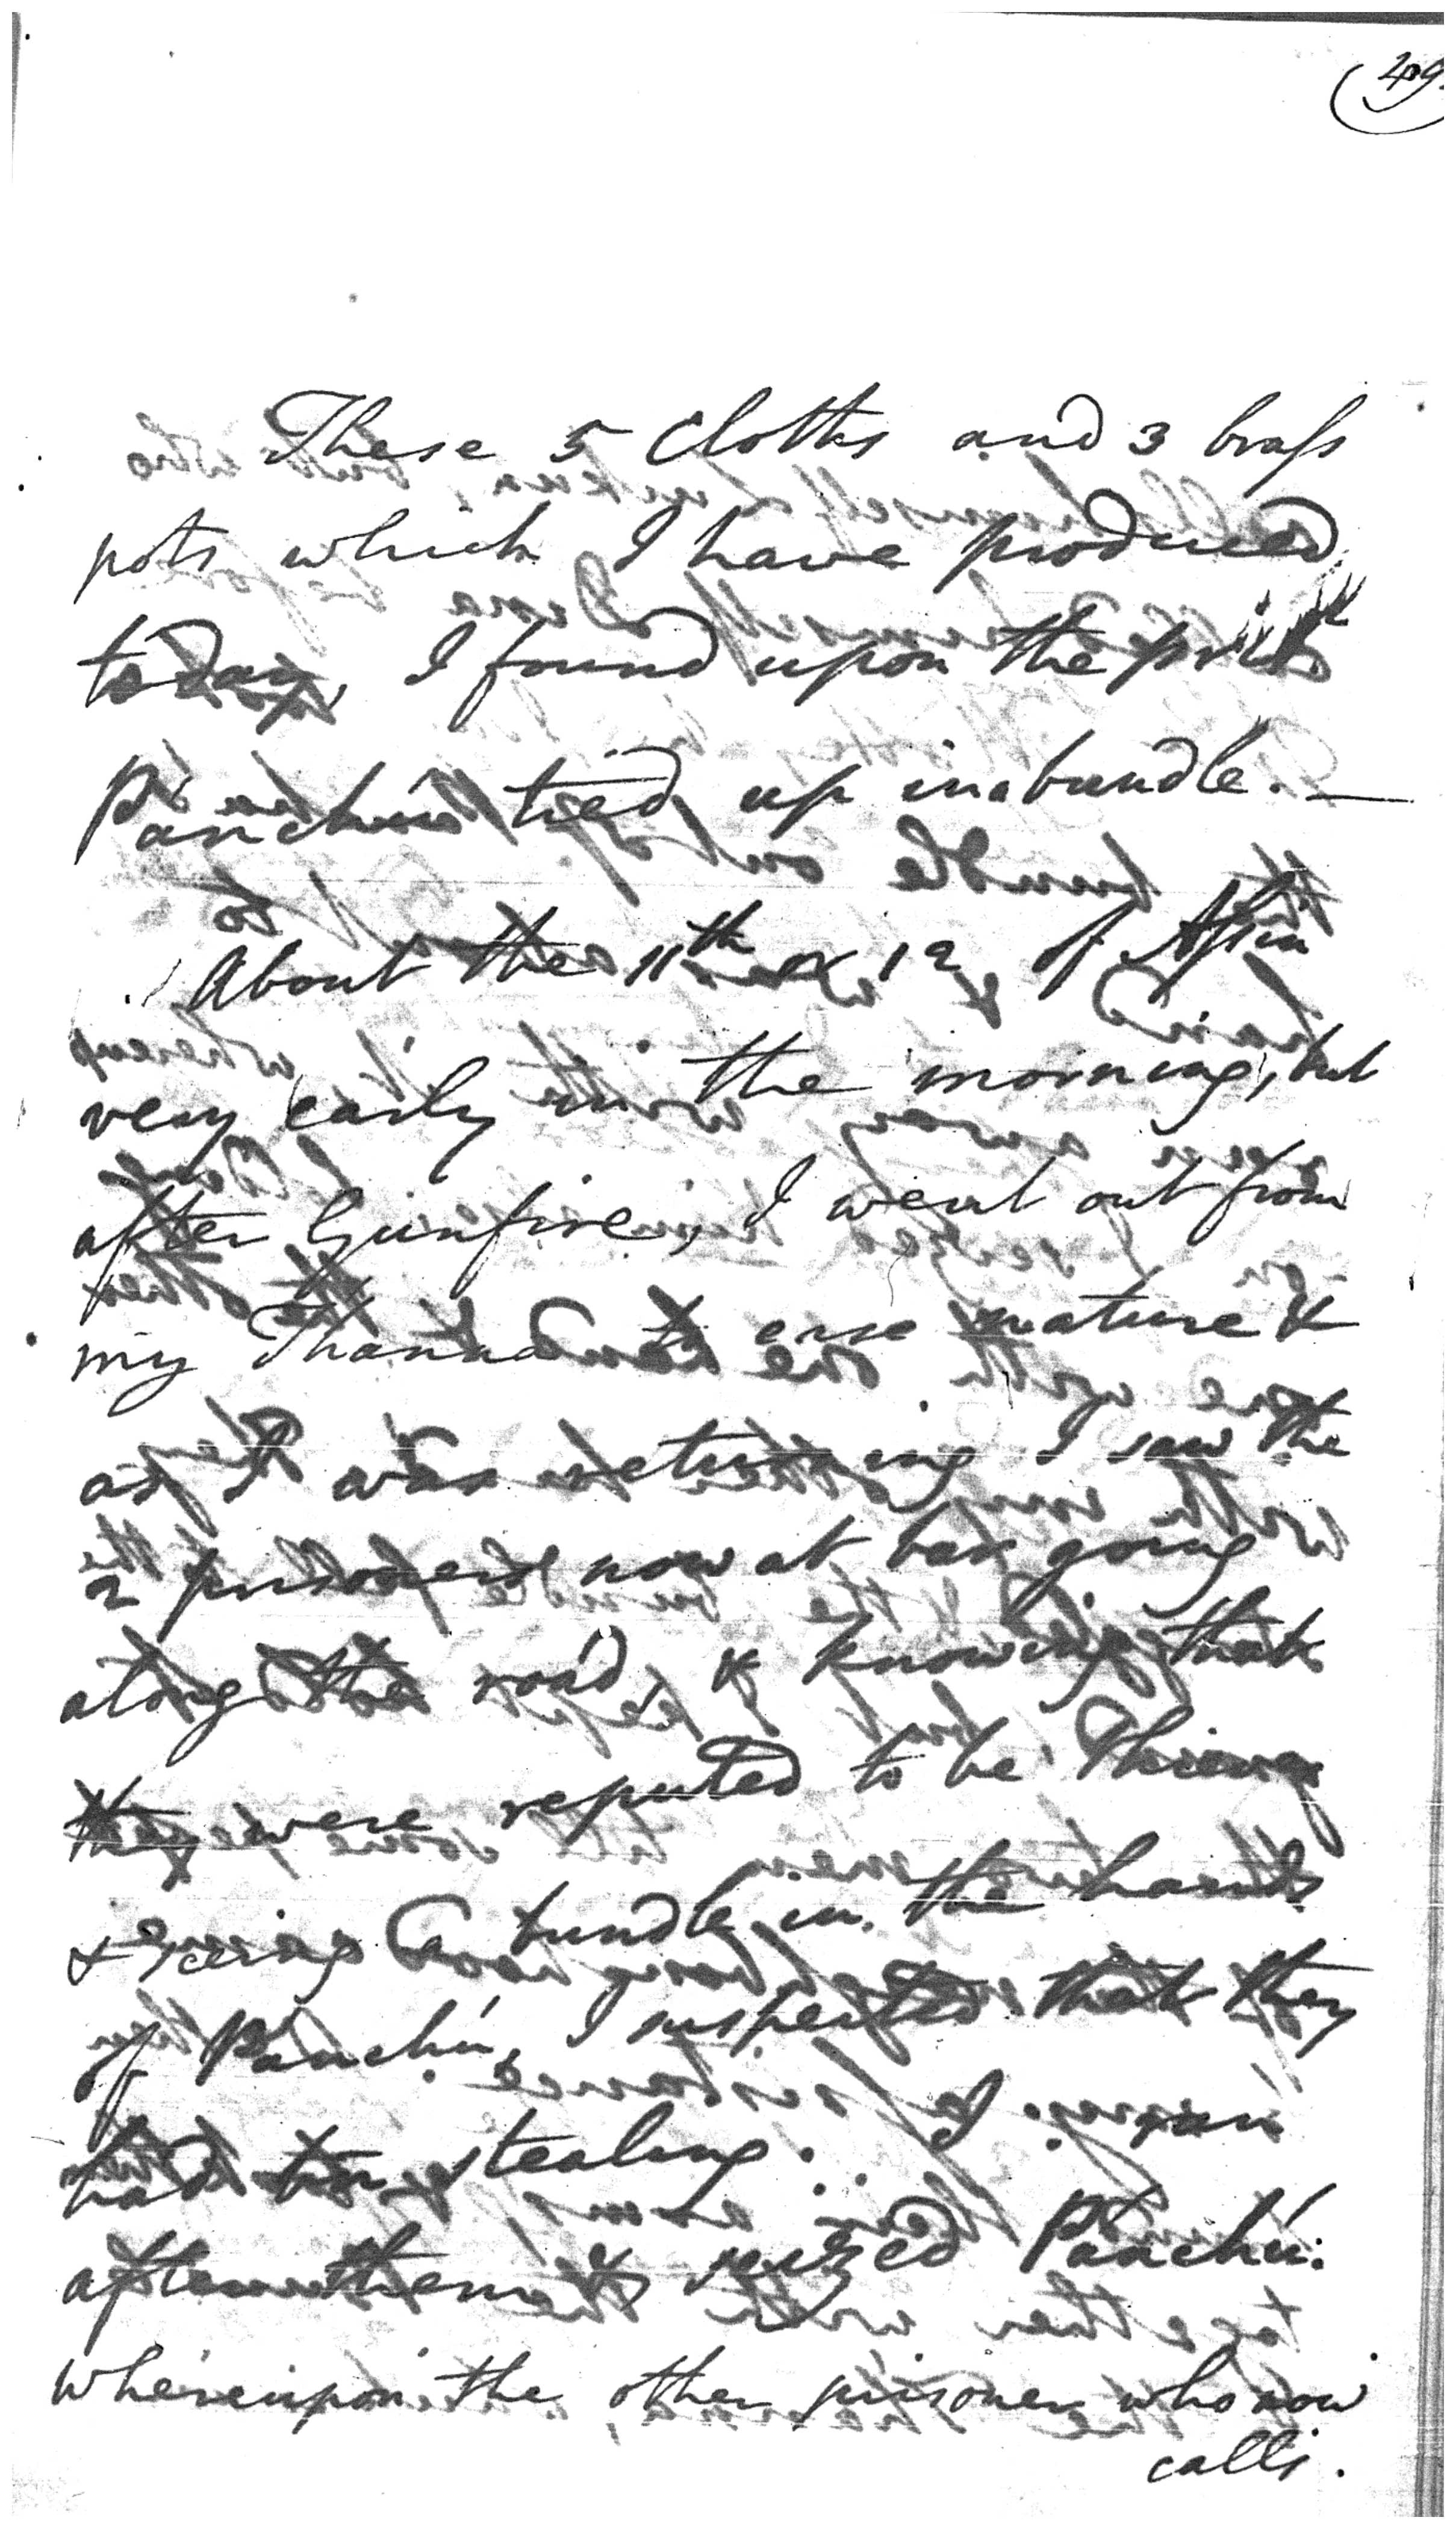 409
These 5 Cloths and 3 brass
pots which I have produced
today, I found upon the prisr
Pánchú tied up in a bundle. —
About the 11th or 12 of Assin
very early in the morning, but
after Gunfire, I went out from
my Thanna to ease nature &
as I was returning I saw the
2 prisoners now at bar going
along the road, & knowing that
they were reputed to be Thieves
& seeing a bundle in the hands
of Pánchú, I suspected that they
had been stealing. I ran
after them & seized Pánchú:
whereupon the other prisoner who now
calls.